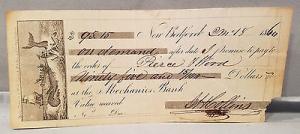 $ 98.15 New Bedford 2m 18 1860
on demand after date I promise to pay to
the order of Pierce & Wood
Ninety five and Dollars
at the Mechanics Bank
Value received
No Due